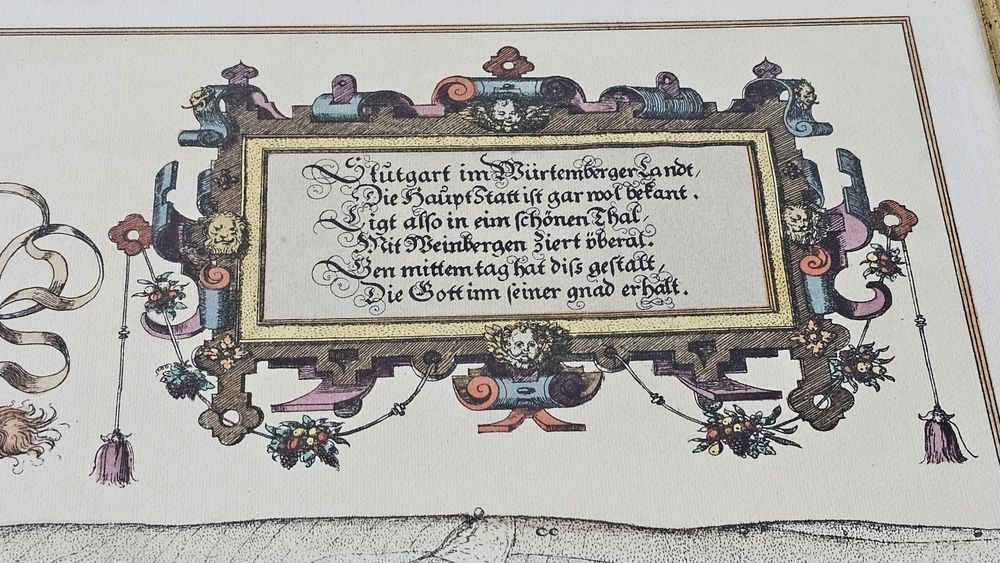 Stutgart im Würtemberger Landt,
Die Haupt Statt ist gar wol bekant.
Ligt also in eim schönen Thal,
Mit Weinbergen Ziert vberal.
Gen mittem tag hat diss gestalt,
Die Gott inn seiner gnad erhalt.